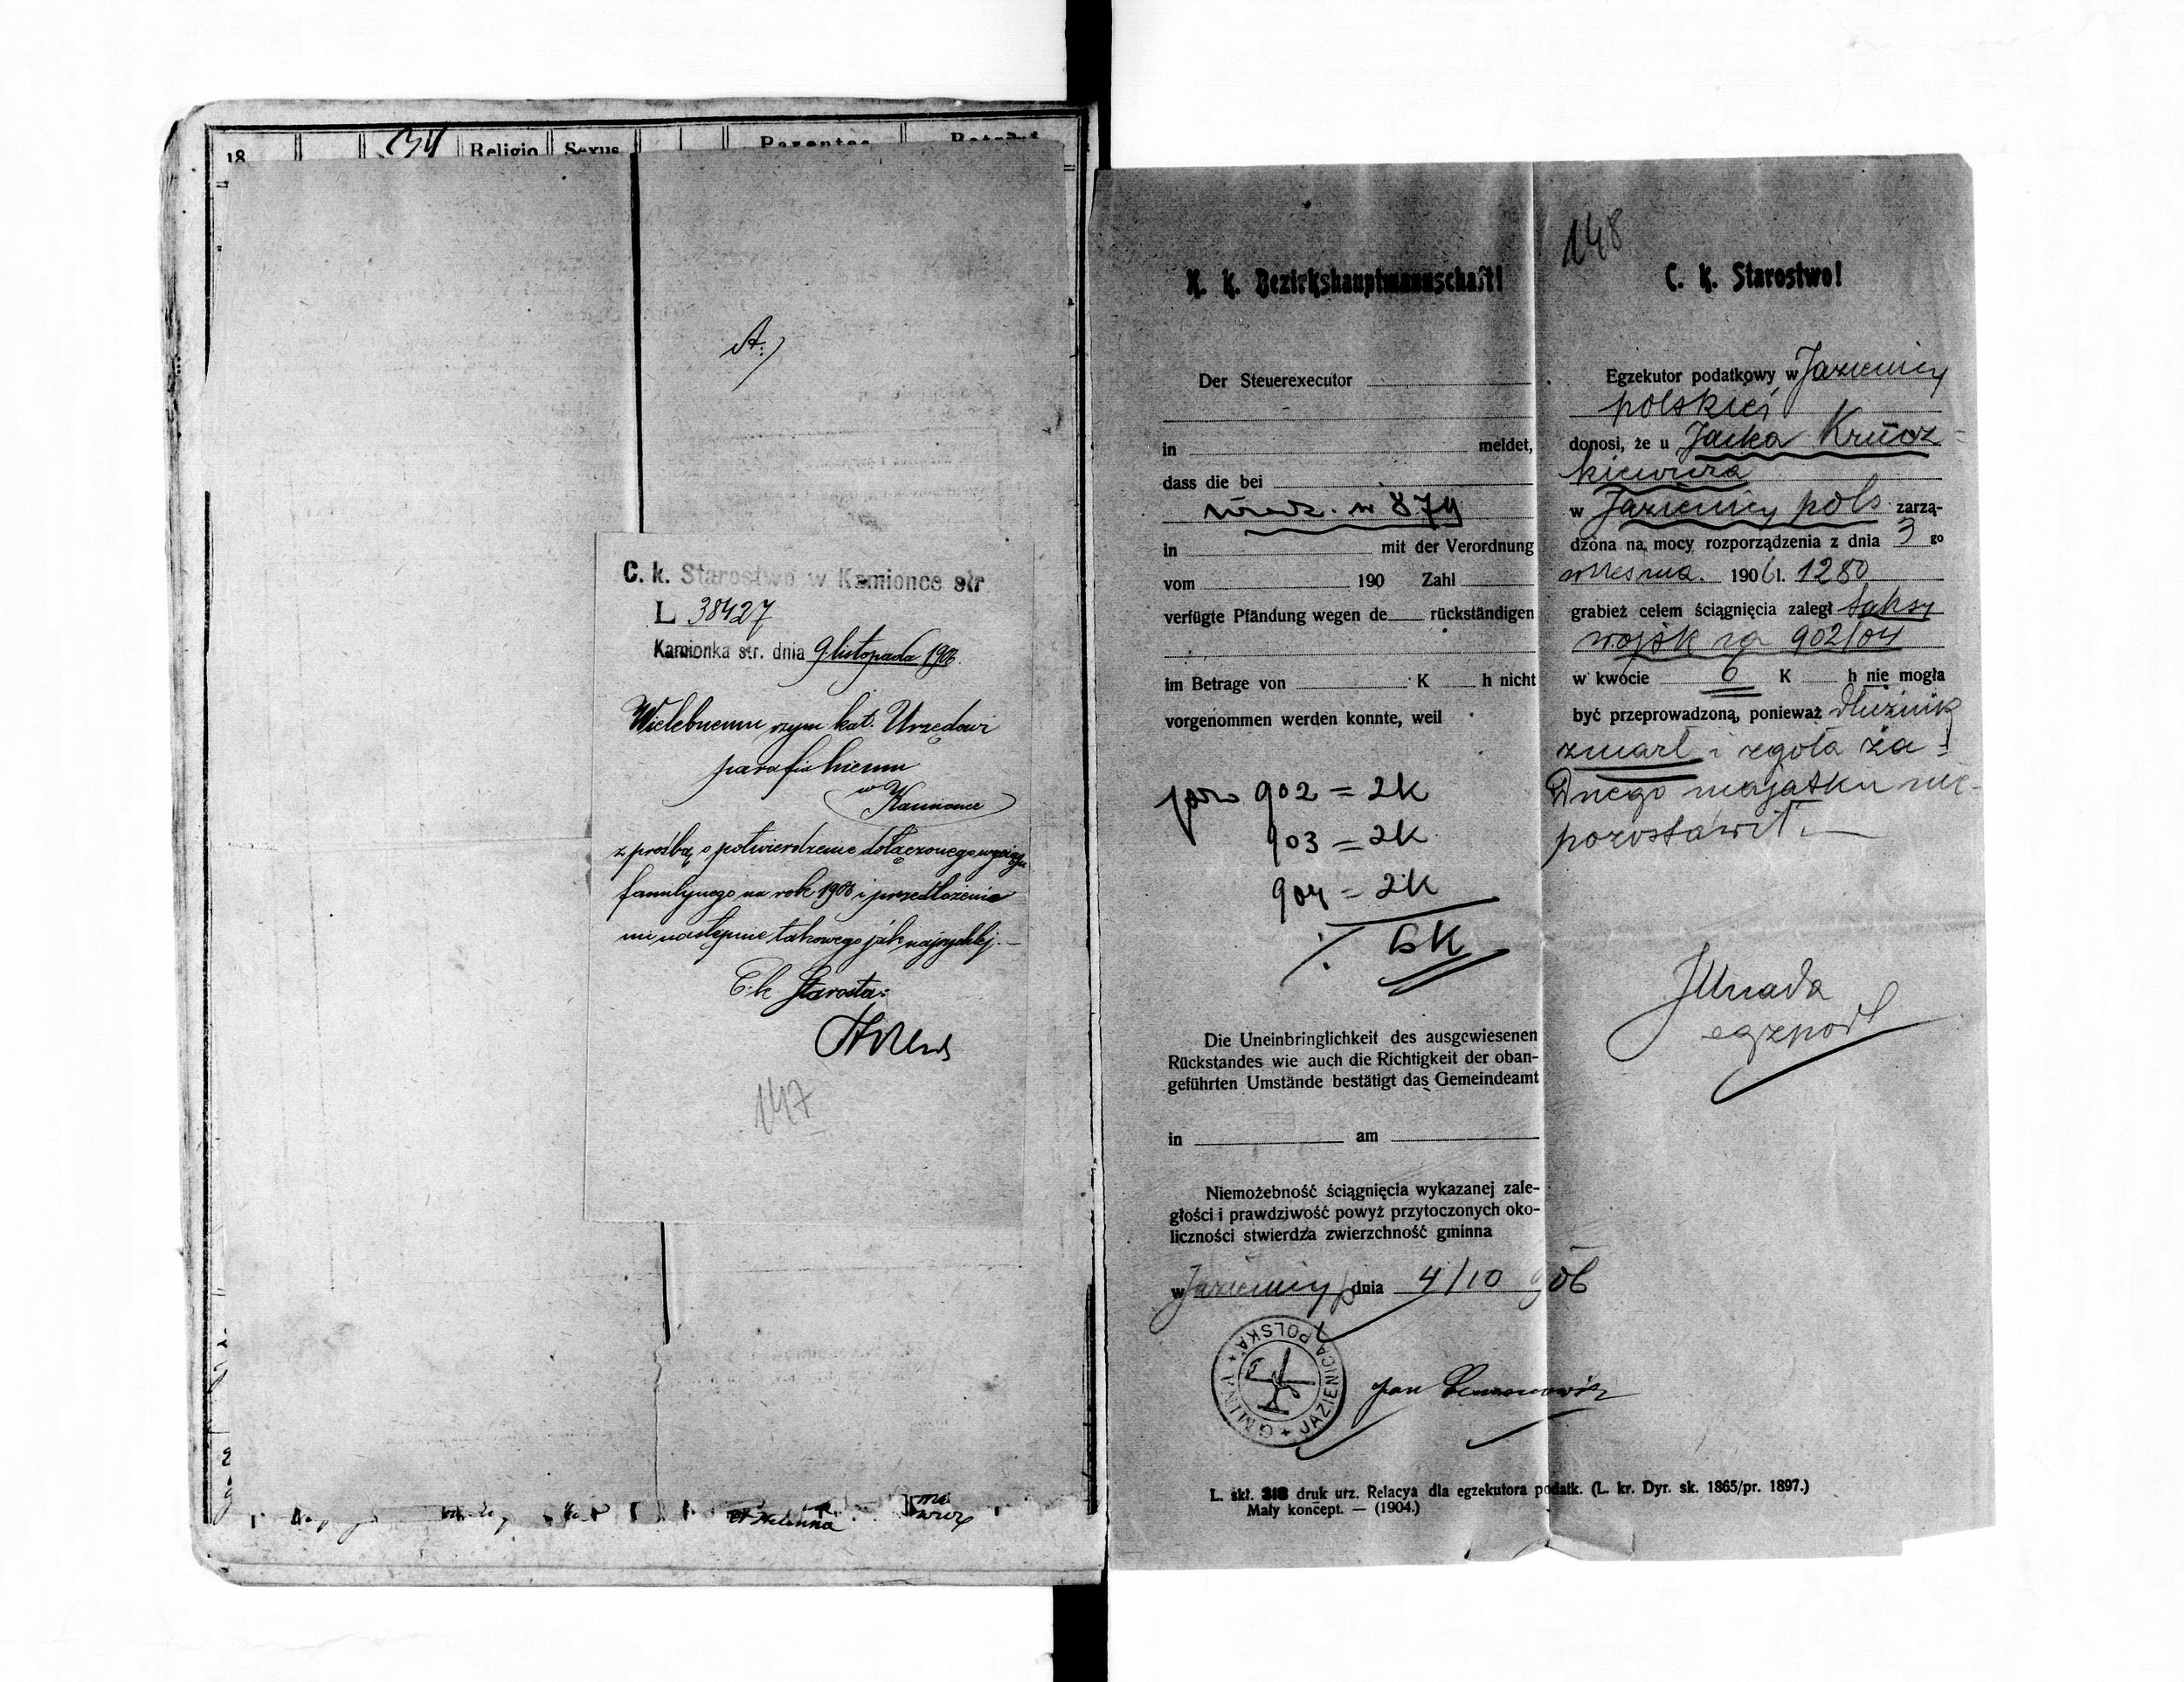 18
Religio Sexus Parentes
A.)
C. k. Starostwo w Kamionce str
L 38427
Kamionka str. dnia 9. listopada 1906.
Wielebnemu rzym kat. Urzędowi
parafialnemu
w Kamionce
z prośbą o potwierdzenie dołączonego wyciągu
familijnego na rok 1906 i przedłożenie
mi następnie takowego jak najrychlej.—
C. k. Starosta:
147
K. k. Bezirkshauptmannschaft!
Der Steuerexecutor
in meldet,
dass die bei
w 879
in mit der Verordnung
vom 190 Zahl
verfügte Pfändung wegen de rückständigen
im Betrage von K h nicht
vorgenommen werden konnte, weil
pro 902 = 2K
903 = 2K
904 = 2K
6K
Die Uneinbringlichkeit des ausgewiesenen
Rückstandes wie auch die Richtigkeit der oban-
geführten Umstände bestätigt das Gemeindeamt
in am
Niemożebność ściągnięcia wykazanej zale-
głości i prawdziwość powyż przytoczonych oko-
liczności stwierdza zwierzchność gminna
w Jazienicy p dnia 4/10 906
GMINA JAZIENICA POLSKA
Jan
148
C. k. Starostwo!
Egzekutor podatkowy w Jazienicy
polskiej
donosi, że u Jacka Krucz-
kiewicza
w Jazienicy pols zarzą-
dzona na mocy rozporządzenia z dnia 3 go
września. 1906 l. 1280
grabież celem ściągnięcia zaległ taksy
wojsk za 902/04
w kwocie 6 K h nie mogła
być przeprowadzoną, ponieważ dłużnik
zmarł i zgoła ża-
dnego majątku nie
pozostawił.—
L. skł. 318 druk urz. Relacya dla egzekutora podatk. (L. kr. Dyr. sk. 1865/pr. 1897.)
Mały koncept. — (1904.)